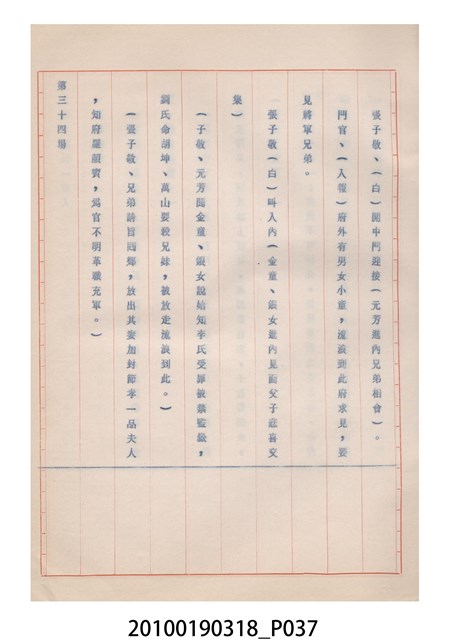 張子敬、(白)開中門迎接(元芳進內兄弟相會)。
門官、(入報)府外有男女小童,流浪到此府求見,要
見將軍兄弟。
張子敬(白)叫入內(金童、銀女進內見面父子悲喜交
集)
(子敬、元芳問金童、銀女說始知李氏受罪被禁監獄,
調氏命胡坤、萬山要殺兄妹,被放走流浪到此。)
(張子敬、兄弟請旨回鄉,放出其妻加封節孝一品夫人
,知府羅顯實,為官不明革職充軍。)
第三十四場
20100190318_P037